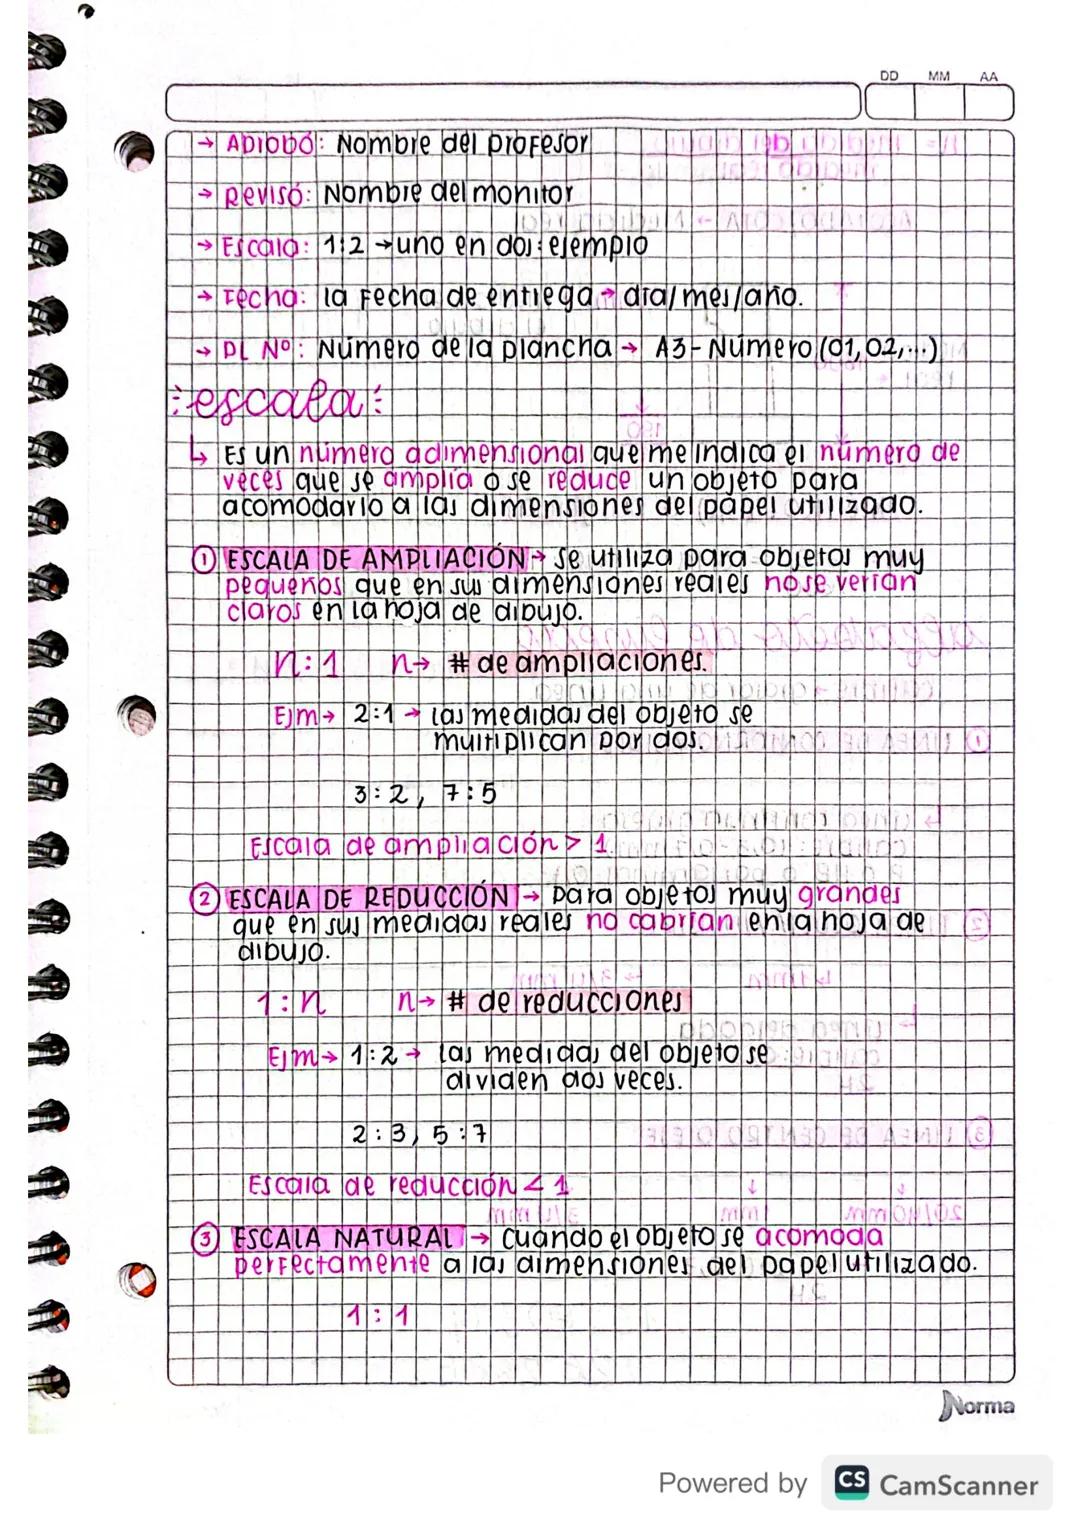 DD MM AA
→ Aprobó: Nombre del profesor
→ Revisó: Nombre del monitor
→ Escala: 1:2 → uno en dos: ejemplo
→ Fecha: la fecha de entrega → día/mes/año.
→ PL Nº: Número de la plancha → A3-Número (01, 02, ...)
escala:
↳ Es un número adimensional que me indica el número de
veces que se amplía o se reduce un objeto para
acomodarlo a las dimensiones del papel utilizado.
① ESCALA DE AMPLIACIÓN → se utiliza para objetos muy
pequeños que en sus dimensiones reales no se verían
claros en la hoja de dibujo.
n:1 n → # de ampliaciones.
Ejm → 2:1 → las medidas del objeto se
multiplican por dos.
3:2, 7:5
Escala de ampliación > 1.
② ESCALA DE REDUCCIÓN → para objetos muy grandes
que en sus medidas reales no cabrían en la hoja de
dibujo.
1:n n → # de reducciones
Ejm → 1:2 → las medidas del objeto se
dividen dos veces.
2:3, 5:7
Escala de reducción < 1
③ ESCALA NATURAL → cuando el objeto se acomoda
perfectamente a las dimensiones del papel utilizado.
1:1
Norma
Powered by CS CamScanner